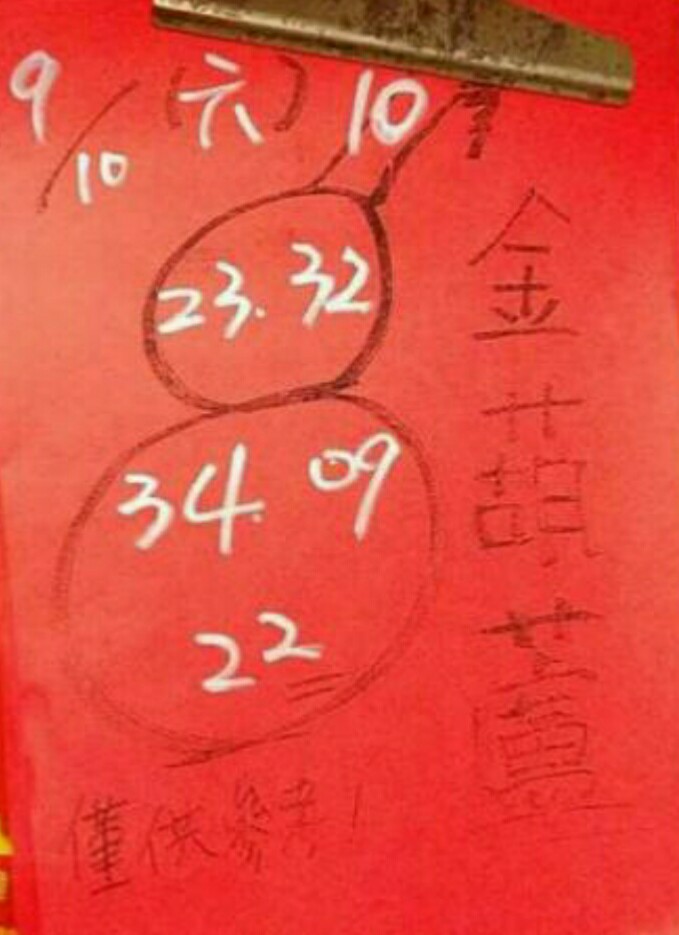 9/10 (六) 10
23. 32
34. 09
22
金葫蘆
僅供參考!